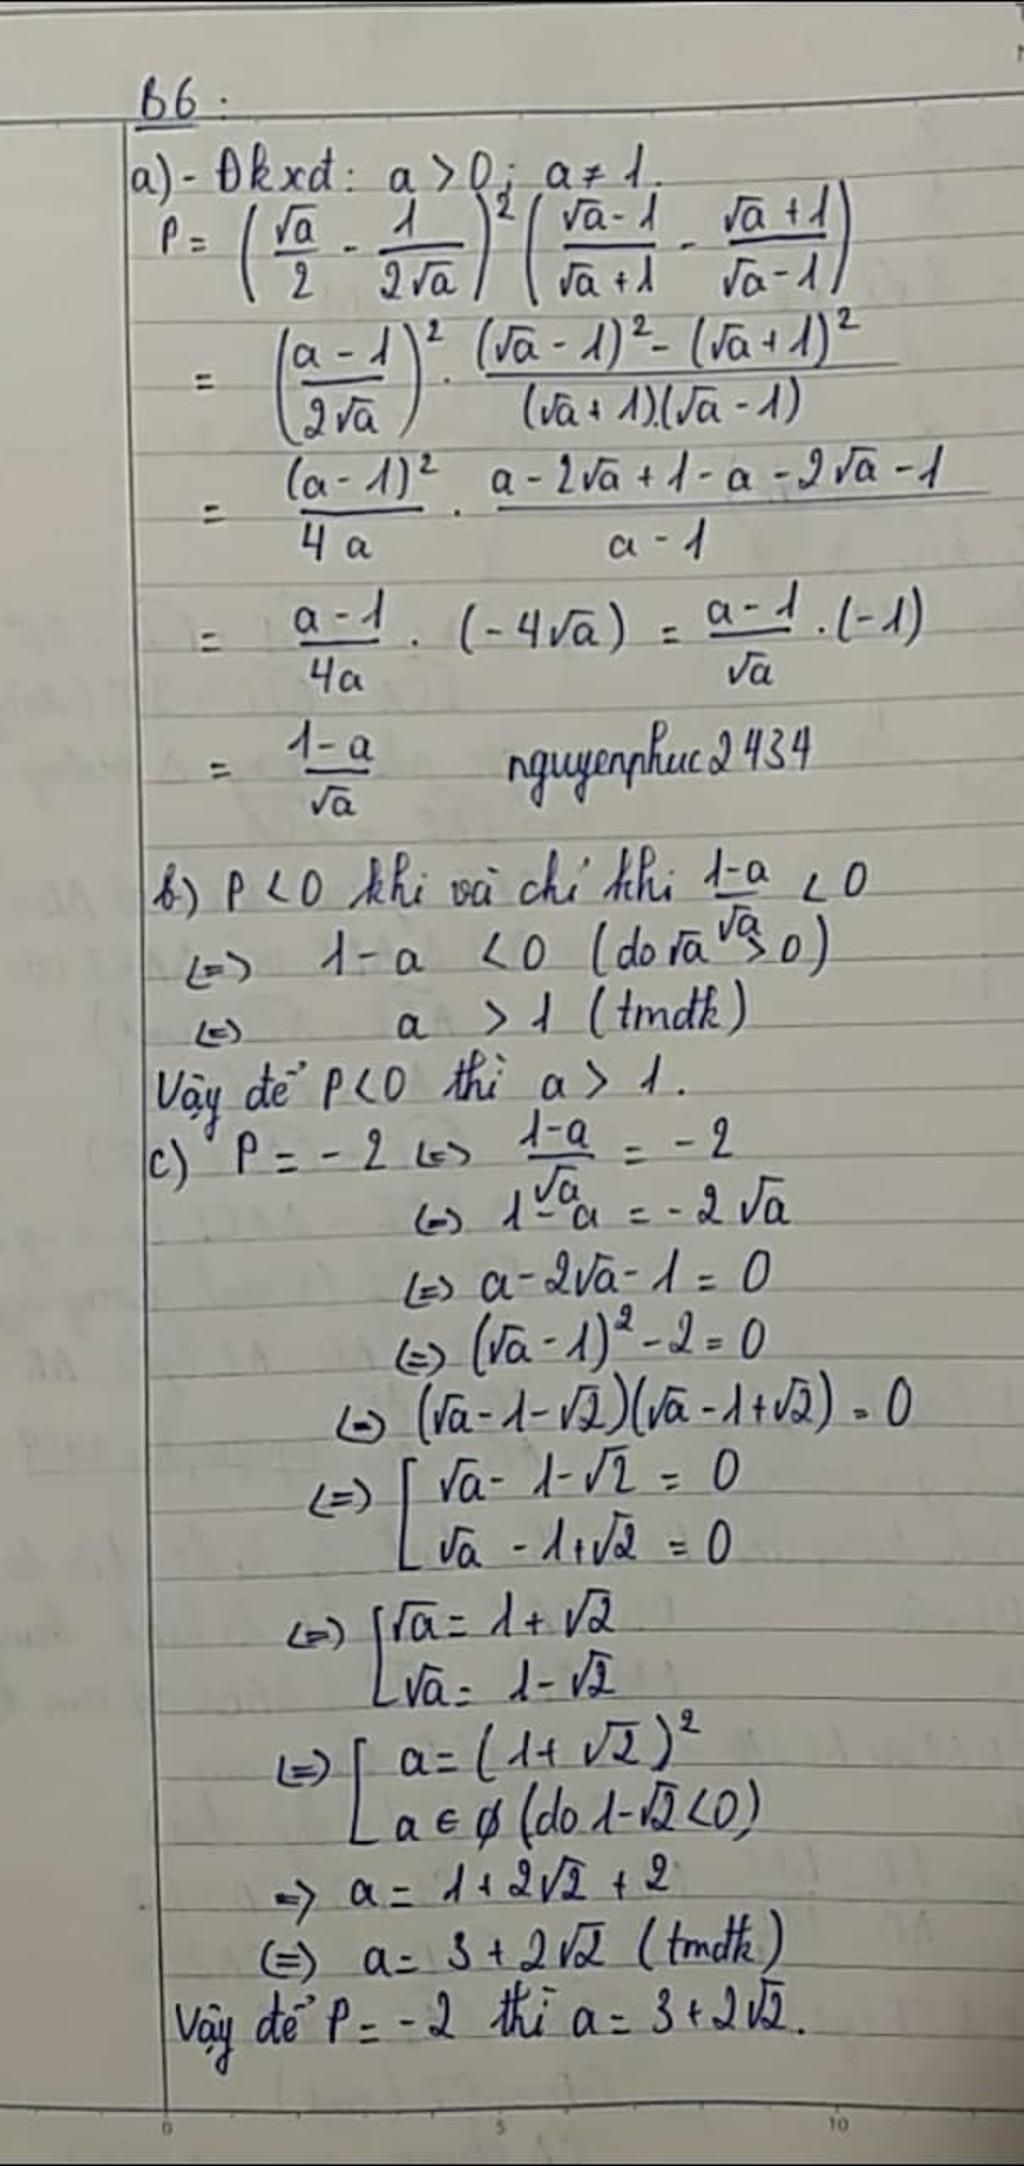 B6 :
a) - Đkxđ: a > 0; a ≠ 1.
P = (√a/2 - 1/(2√a))² ((√a - 1)/(√a + 1) - (√a + 1)/(√a - 1))
= ((a - 1)/(2√a))² . ((√a - 1)² - (√a + 1)²)/((√a + 1).(√a - 1))
= (a - 1)²/(4a) . (a - 2√a + 1 - a - 2√a - 1)/(a - 1)
= (a - 1)/(4a) . (-4√a) = (a - 1)/√a . (-1)
= (1 - a)/√a nguyenphuc2434
b) P < 0 khi và chỉ khi (1-a)/√a < 0
<=> 1 - a < 0 (do √a > 0)
<=> a > 1 (tmđk)
Vậy để P < 0 thì a > 1.
c) P = - 2 <=> (1-a)/√a = - 2
<=> 1 - a = - 2√a
<=> a - 2√a - 1 = 0
<=> (√a - 1)² - 2 = 0
<=> (√a - 1 - √2)(√a - 1 + √2) = 0
<=> [ √a - 1 - √2 = 0
√a - 1 + √2 = 0
<=> [ √a = 1 + √2
√a = 1 - √2
<=> [ a = (1 + √2)²
a ∈ ∅ (do 1 - √2 < 0)
=> a = 1 + 2√2 + 2
<=> a = 3 + 2√2 (tmđk)
Vậy để P = - 2 thì a = 3 + 2√2.
0 5 10